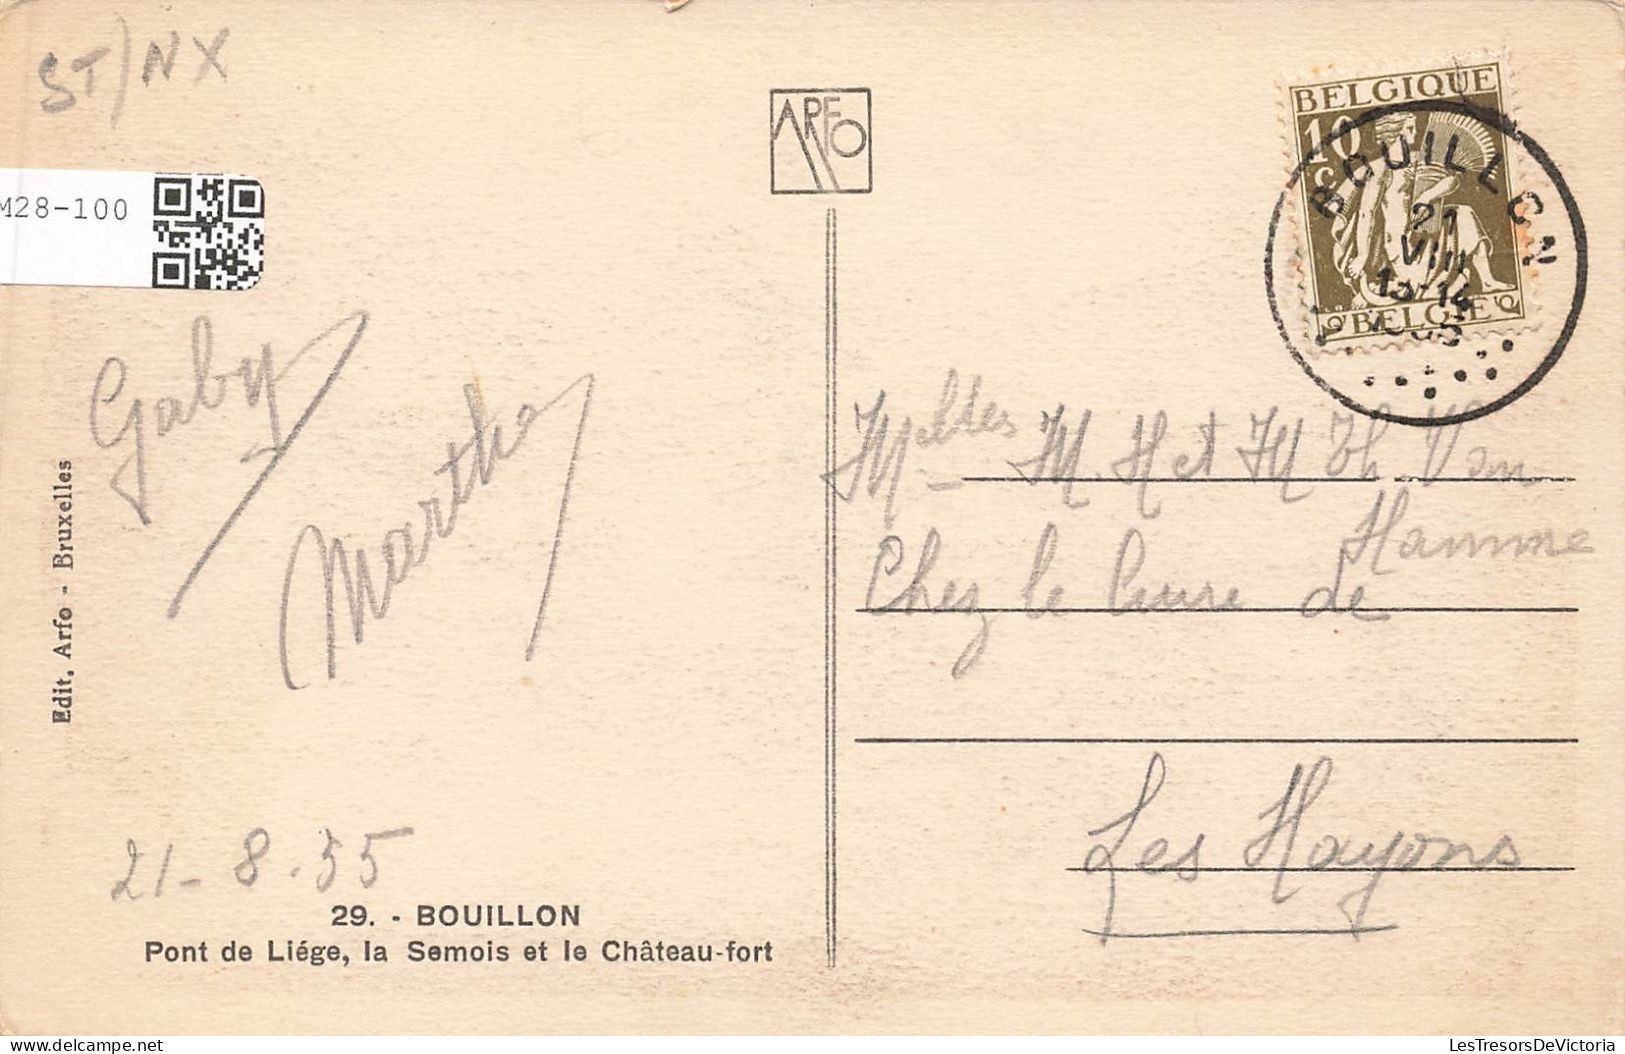 ST/NX
M28-100
ARFO
BELGIQUE
10
c
BELGIË
BOUILLON
21
VIII
13-14
Gaby
Martha
Edit. Arfo - Bruxelles
21-8-35
29. - BOUILLON
Pont de Liége, la Semois et le Château-fort
M. H et M Th. Van
Hamme
Chez le Cure de
Les Hayons
www.delcampe.net
LesTresorsDeVictoria